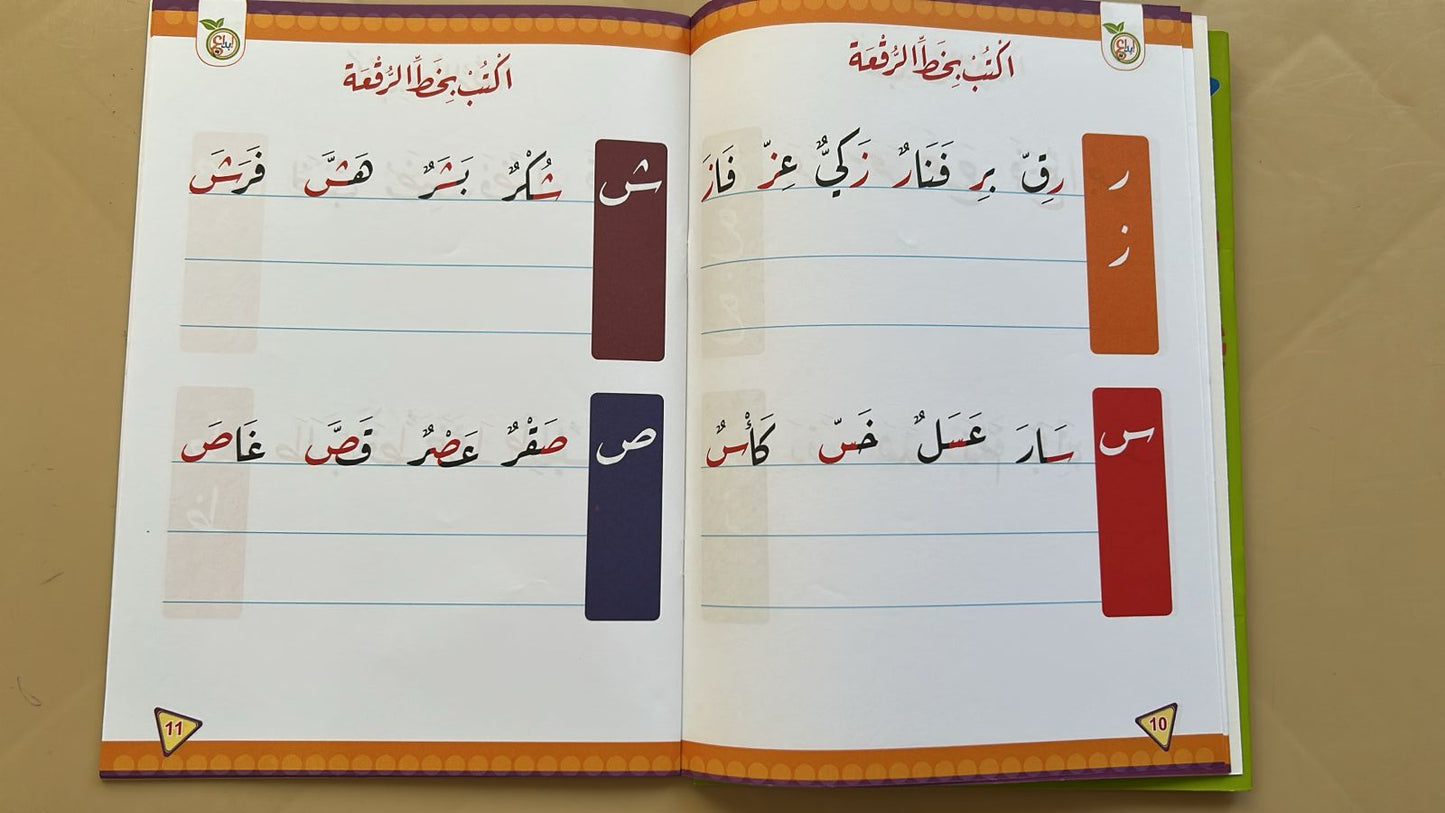 اكْتُبْ بِخَطِّ الرُّقْعَة
ر
ز
رِقّ بِر فَنَارٌ زَكِيٌّ عِزّ فَازَ
س
سَارَ عَسَلٌ خَسّ كَأْسٌ
10
اكْتُبْ بِخَطِّ الرُّقْعَة
ش
شُكْرٌ بَشَرٌ هَشَّ فَرَشَ
ص
صَقْرٌ عَصْرٌ قَصَّ غَاصَ
11